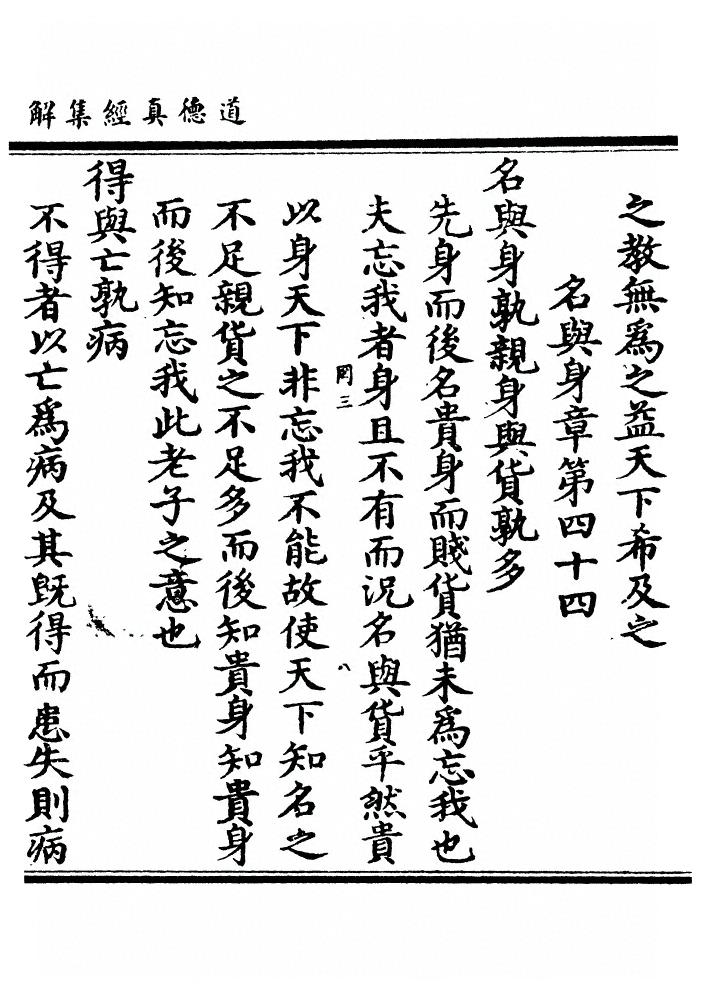 道德真經集解
之教無為之益天下希及之
名與身章第四十四
名與身孰親身與貨孰多
先身而後名貴身而賤貨猶未為忘我也
夫忘我者身且不有而況名與貨乎然貴
罔三
八
以身天下非忘我不能故使天下知名之
不足親貨之不足多而後知貴身知貴身
而後知忘我此老子之意也
得與亡孰病
不得者以亡為病及其既得而患失則病